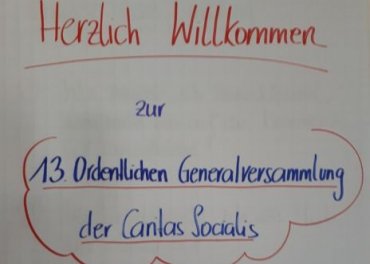 Herzlich Willkommen
zur
13. Ordentlichen Generalversammlung
der Caritas Socialis